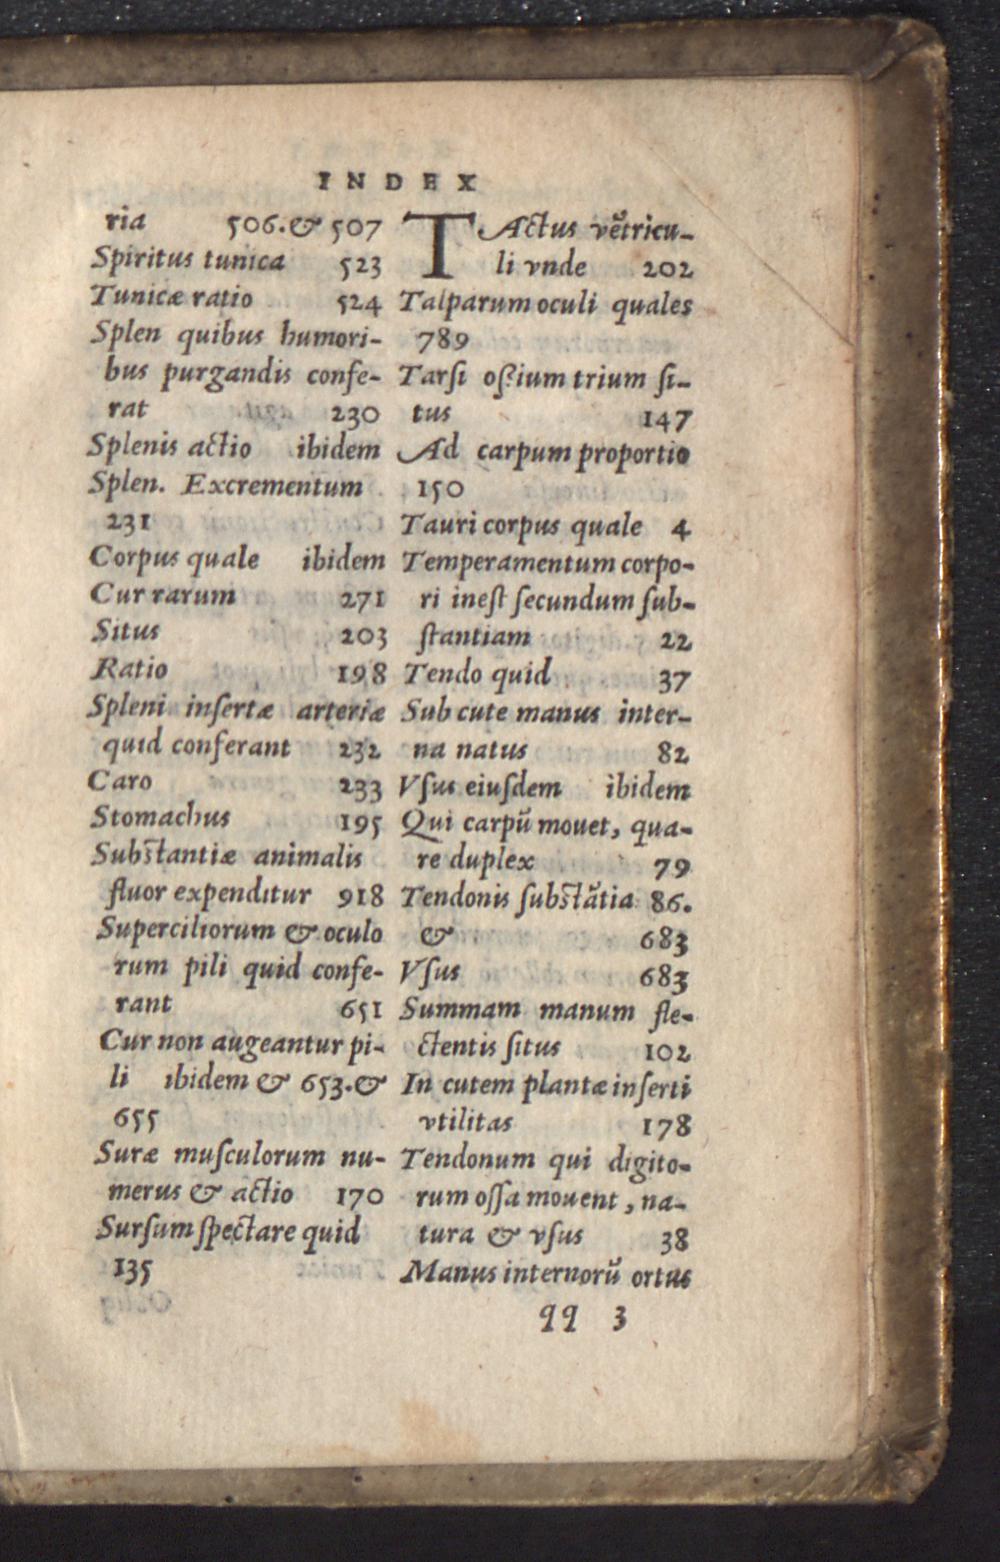 INDEX
ria 506.& 507
Spiritus tunica 523
Tunicæ ratio 524
Splen quibus humori-
bus purgandis confe-
rat 230
Splenis actio ibidem
Splen. Excrementum
231
Corpus quale ibidem
Cur rarum 271
Situs 203
Ratio 198
Spleni insertæ arteriæ
quid conferant 232
Caro 233
Stomachus 195
Substantiæ animalis
fluor expenditur 918
Superciliorum & oculo
rum pili quid confe-
rant 651
Cur non augeantur pi-
li ibidem & 653.&
655
Suræ musculorum nu-
merus & actio 170
Sursum spectare quid
135
TActus vẽtricu-
li vnde 202
Talparum oculi quales
789
Tarsi oſsium trium ſi-
tus 147
Ad carpum proportio
150
Tauri corpus quale 4
Temperamentum corpo-
ri ineſt ſecundum ſub-
ſtantiam 22
Tendo quid 37
Sub cute manus inter-
na natus 82
Vſus eiuſdem ibidem
Qui carpũ mouet, qua-
re duplex 79
Tendonis ſubſtãtia 86.
& 683
Vſus 683
Summam manum fle-
ctentis ſitus 102
In cutem plantæ inſerti
vtilitas 178
Tendonum qui digito-
rum oſſa mouent, na-
tura & vſus 38
Manus internorũ ortus
qq 3